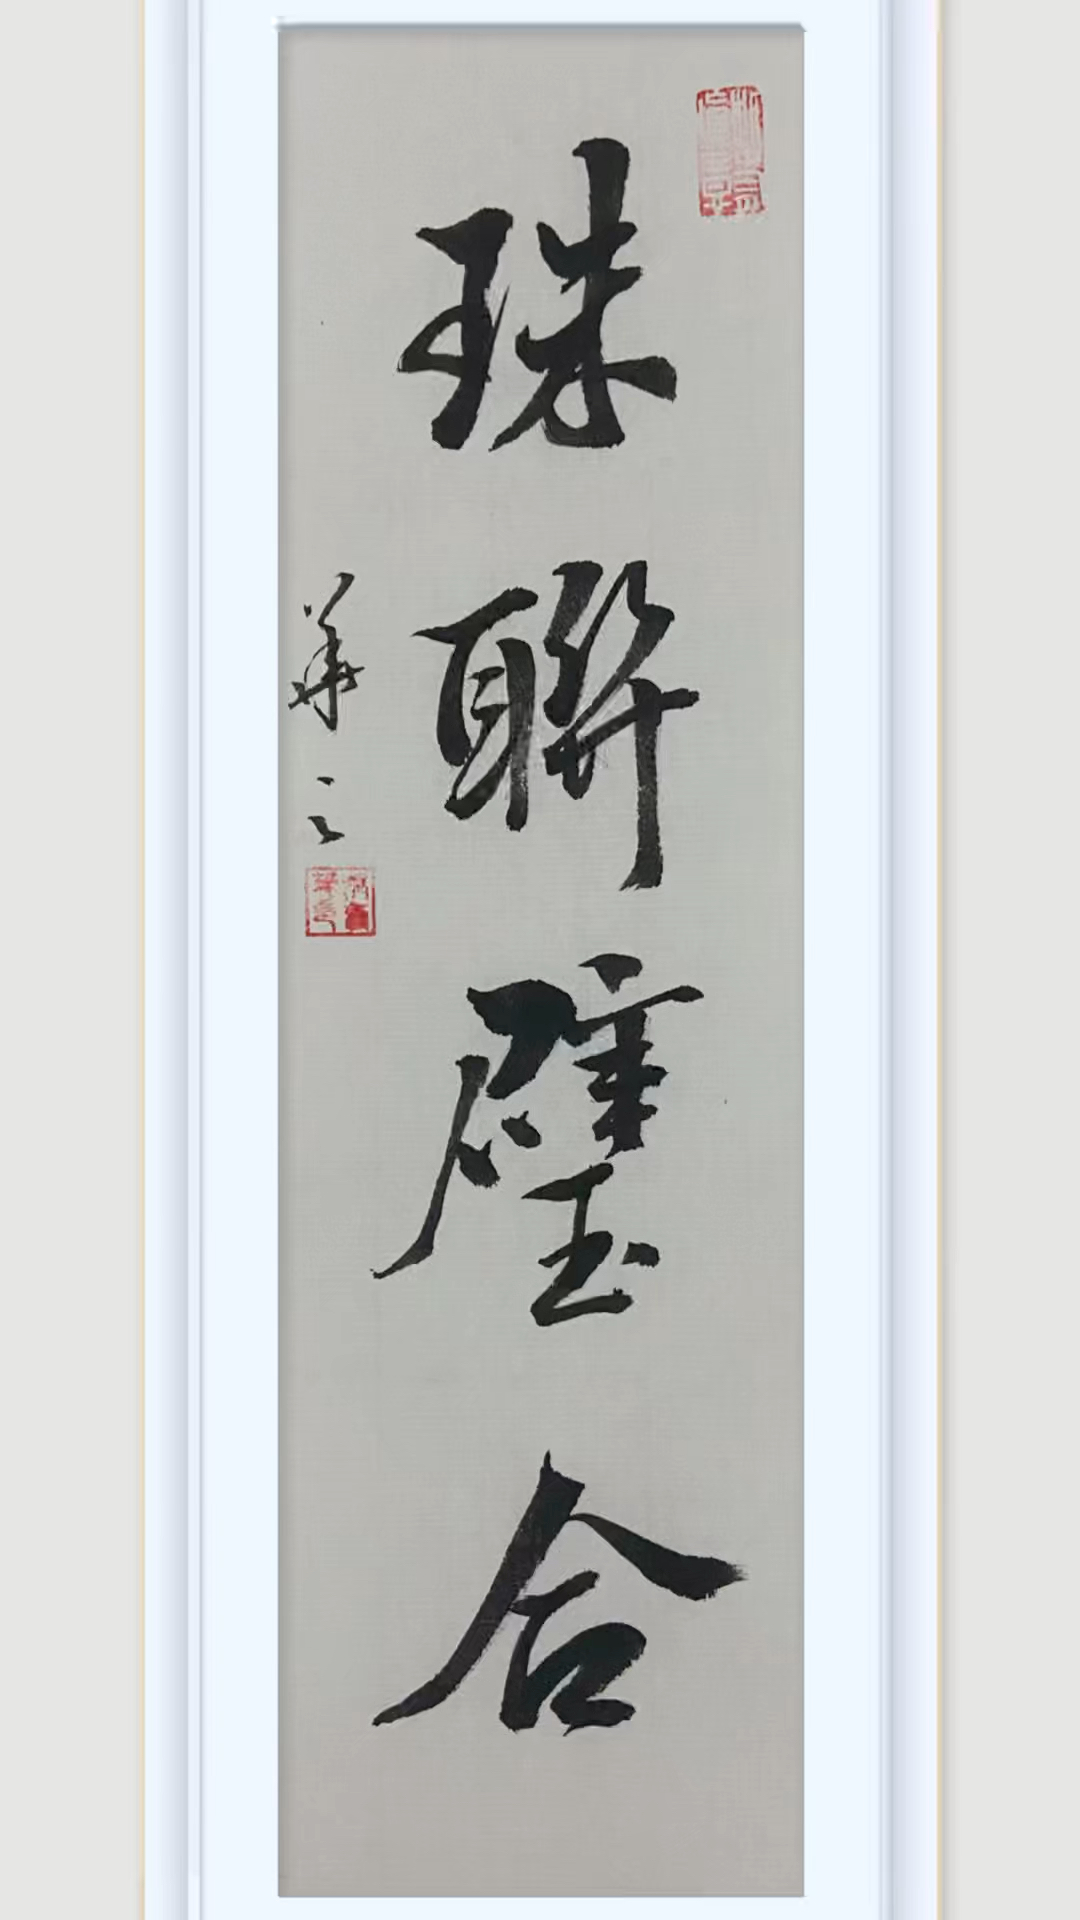 珠聯璧合
華之